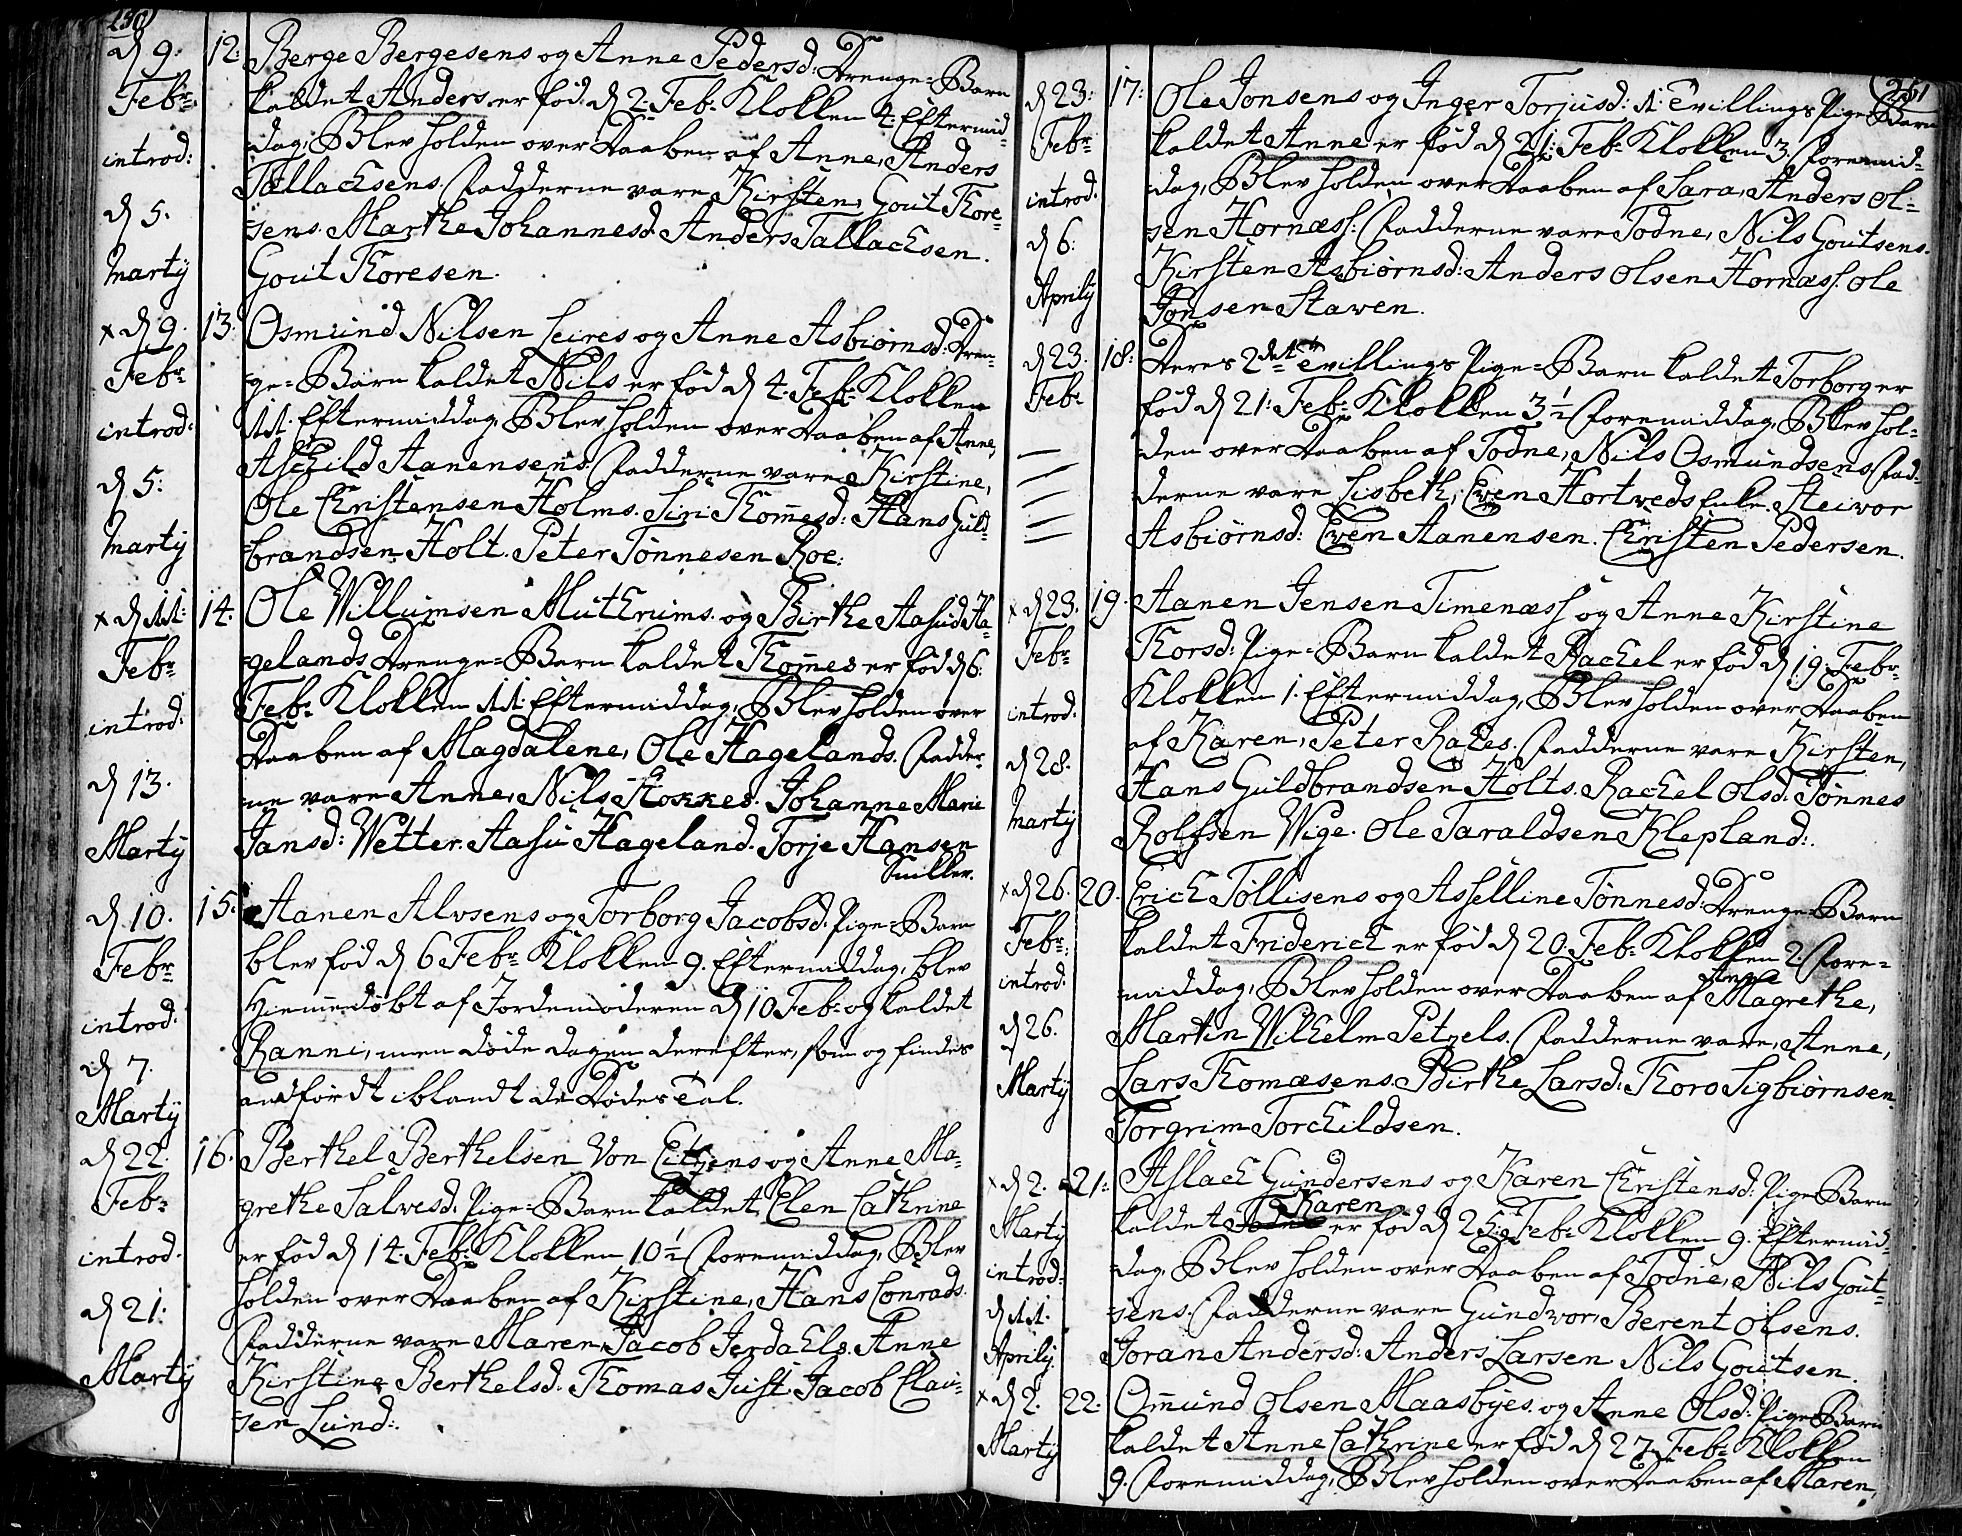 230
d 9. 12. Berge Bergesens og Anne Pedersd: Drenge-Barn
Febr: kaldet Anders er fød d 2. Feb: Klokken 4. Eftermid-
introd: dag, Blev holden over Daaben af Anne, Anders
Tallachsens. Fadderne vare Kirsten, Gout Thore-
d 5. sens. Marthe Johannesd: Anders Tallachsen.
Marty Gout Thoresen.
x d 9. 13. Osmund Nilsen Leires og Anne Asbiørnsd: Dren-
Febr ge-Barn kaldet Nils er fød d 4. Feb: Klokken
introd: 11. Eftermiddag, Blev holden over Daaben af Anne,
Aschild Aanensens. Fadderne vare Kirstine,
d 5: Ole Christensen Holms. Siri Thommesd: Hans Guld-
Marty brandsen Holt. Peter Tønnesen Roe.
x d 11: 14. Ole Willumsen Mutherums. og Birthe Aasud Ha-
Febr gelands Drenge-Barn kaldet Thommes er fød d 6.
introd: Feb: Klokken 11. Eftermiddag, Blev holden over
Daaben af Magdalene, Ole Hagelands. Fadder-
d 13. ne vare Anne, Nils Hokkes. Johanne Marie
Marty Jansd: Wetter. Aasu Hageland. Torje Hansen
Smiller.
d 10. 15. Aanen Alvsens og Torborg Jacobsd: Pige-Barn
Febr blev fød d 6 Febr Klokken 9. Eftermiddag, blev
introd: Hiemmedøbt af Jordemoderen d 10 Feb: og kaldet
d 7. Ranni, men døde dagen derefter, som og findes
Marty andførdt iblandt de Dødes Tal.
d 22. 16. Berthel Berthelsen Von Eitzens og Anne Ma-
Febr grethe Salvesd: Pige-Barn kaldet Elen Cathrine
introd: er fød d 14. Feb: Klokken 10 1/2 Foremiddag, Blev
d 21: holden over Daaben af Kirstine, Hans Conrads.
Fadderne vare Maren Jacob Jerdahls. Anne
Marty Kirstine Berthelsd. Thomas Just. Jacob Clau-
sen Lund.
251
d 23: 17: Ole Jonsens og Inger Torjusd: 1. Tvillings Pige-Barn
Febr kaldet Anne er fød d 21: Feb: Klokken 3. Foremid-
introd: dag, Blev holden over Daaben af Sara, Anders Ol-
d 6: sen Hornæss: Fadderne vare Todne, Nils Goutsens.
Aprily Kirsten Asbiørnsd: Anders Olsen Hornæss. Ole
Jonsen Staven.
d 23. 18: Deres 2det Tvillings Pige-Barn kaldet Torborg er
Febr fød d 21: Feb: Klokken 3 1/2 Foremiddag, Blev hol-
den over Daaben af Todne, Nils Osmundsens. Fad-
derne vare Lisbeth, Even Hortveds Enke. Steivor
Asbiørnsd: Even Aanensen. Christen Pedersen.
x d 23. 19. Aanen Jensen Timenæss og Anne Kirstine
Febr Thorsd: Pige-Barn kaldet Rachel er fød d 19. Febr
introd: Klokken 1. Eftermiddag, Blev holden over Daaben
d 28. af Karen, Peter Rates. Fadderne vare Kirsten,
Marty Hans Guldbrandsen Holts. Rachel Olsd: Tønnes
Rolfsen Wige. Ole Taraldsen Klepland:
x d 26. 20. Erich Tøllisens og Asselline Tønnesd: Drenge-Barn
Febr: kaldet Friderich er fød d 20. Feb: Klokken 2. Fore-
introd: middag, Blev holden over Daaben af Anne Magrethe,
d 26. Martin Wilhelm Petzels. Fadderne vare, Anne,
Marty Lars Thomæsens. Birthe Larsd: Thoro Sigbiørnsen.
Torgrim Torchildsen.
x d 2. 21: Aslach Gundersens og Karen Christensd: Pige-Barn
Marty kaldet Karen er fød d 25. Feb: Klokken 9. Eftermid-
introd: dag, Blev holden over Daaben af Todne, Nils Gout-
d 11. sens. Fadderne vare Gundvor, Berent Olsens.
Aprily Joran Andersd: Anders Larsen Nils Goutsen.
x d 2. 22. Omund Olsen Maasbyes. og Anne Olsd: Pige-Barn
Marty kaldet Anne Cathrine er fød d 27. Feb: Klokken
9. Foremiddag, Blev holden over Daaben af Maren,